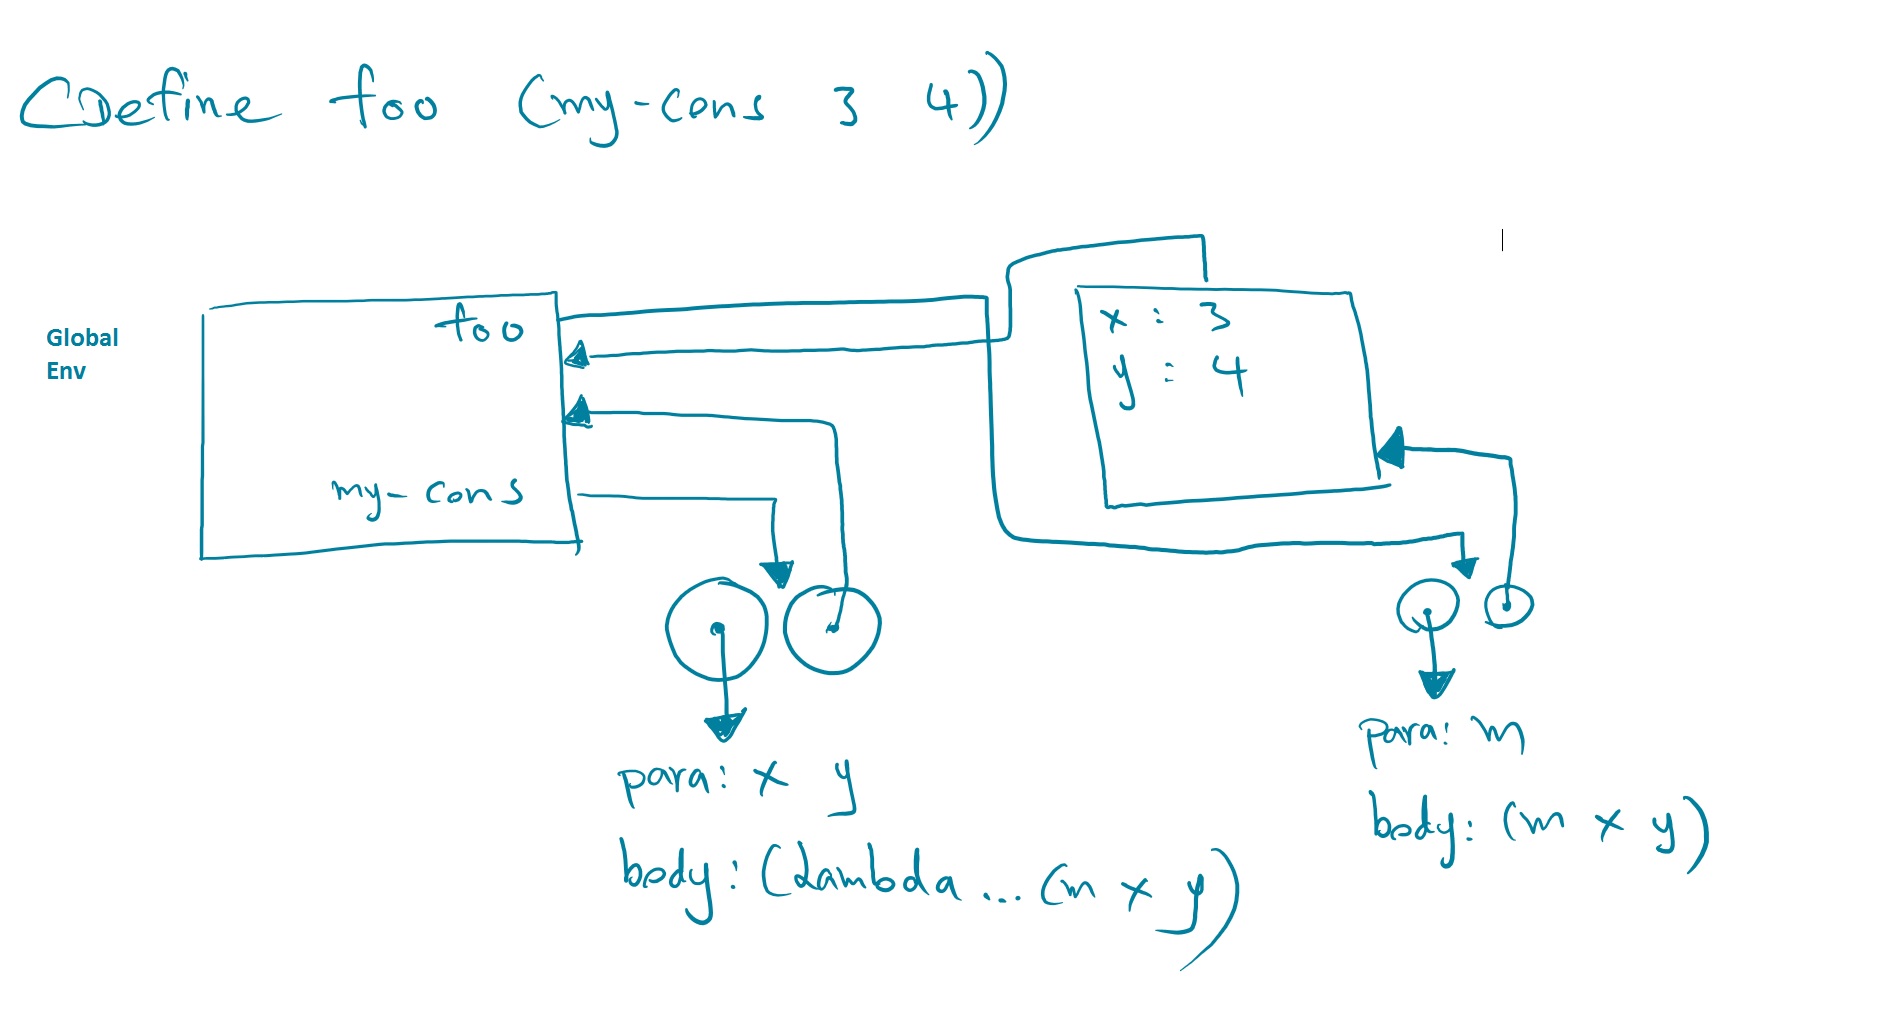 (Define foo (my-cons 3 4))
Global
Env
foo
my-cons
x : 3
y : 4
para: x y
body: (Lambda ... (m x y)
para: m
body: (m x y)